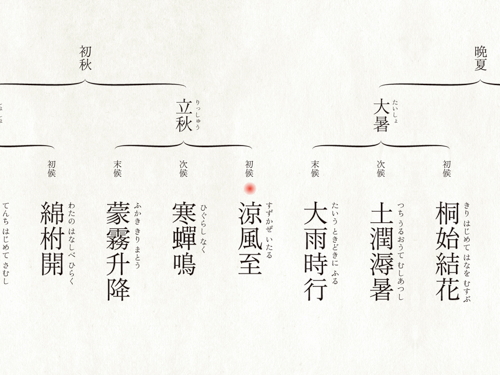 晩夏
大暑
たいしょ
初候
桐始結花
きり はじめて はなを むすぶ
次候
土潤溽暑
つち うるおうて むしあつし
末候
大雨時行
たいう ときどきに ふる
初秋
立秋
りっしゅう
初候
涼風至
すずかぜ いたる
次候
寒蟬鳴
ひぐらし なく
末候
蒙霧升降
ふかき きり まとう
初候
綿柎開
わたの はなしべ ひらく
てんち はじめて さむし